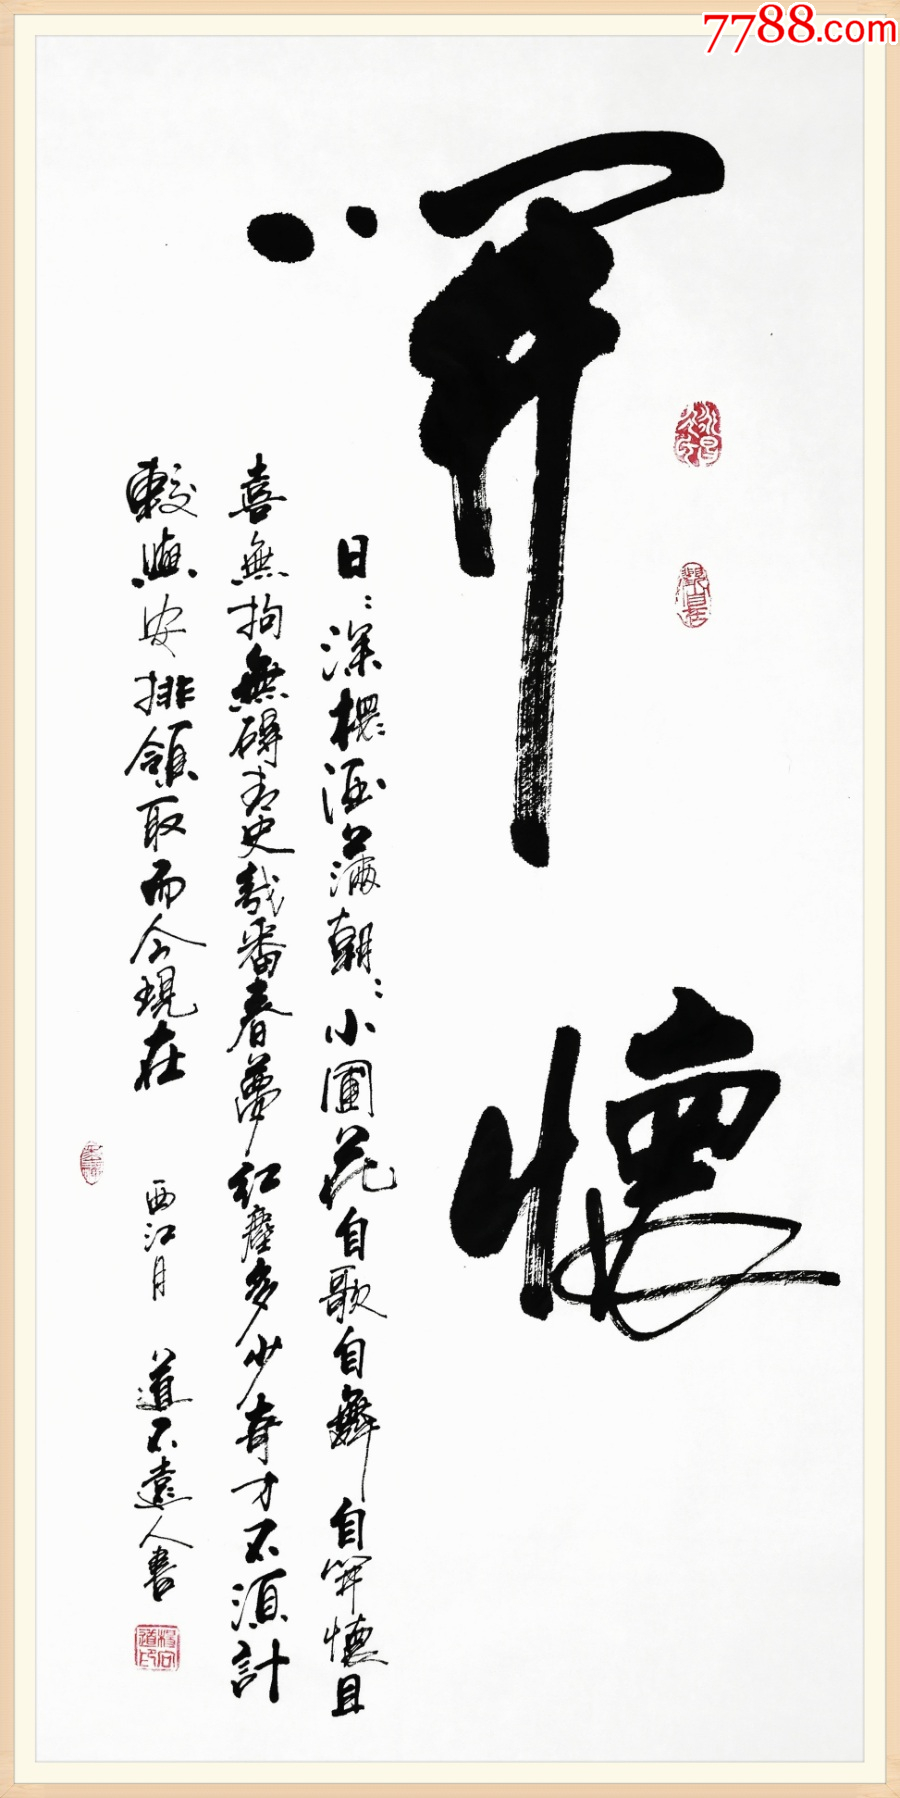 7788.com
開懷
日〻深桮酒滿朝〻小圃花自歌自舞自開懷且
喜無拘無礙青史幾番春夢紅塵多少奇才不須計
較與安排領取而今現在 西江月 道不遠人書